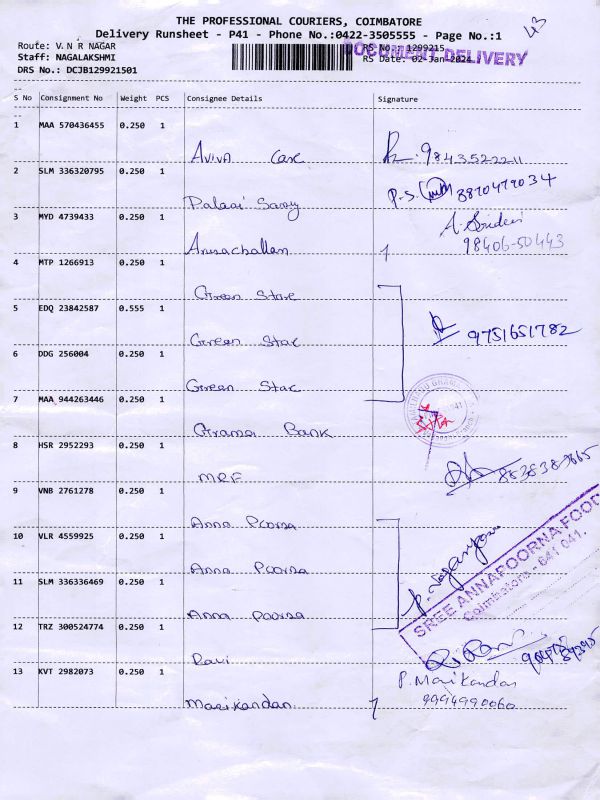 THE PROFESSIONAL COURIERS, COIMBATORE
Delivery Runsheet - P41 - Phone No.:0422-3505555 - Page No.:1
43
Route: V.N R NAGAR
RS No.: 1299215
DOCUMENT DELIVERY
Staff: NAGALAKSHMI
RS Date: 02-Jan-2024
DRS No.: DCJB129921501
S No Consignment No Weight PCS Consignee Details Signature
1 MAA 570436455 0.250 1
Aviva Care 9843522211
2 SLM 336320795 0.250 1
P.S. 8870479034
Palani Samy
3 MYD 4739433 0.250 1
A. Sridevi
98406-50443
Arunachallam
4 MTP 1266913 0.250 1
Green Star
5 EDQ 23842587 0.555 1
9751651782
Green Star
6 DDG 256004 0.250 1
Green Star
7 MAA 944263446 0.250 1
Grama Bank
8 HSR 2952293 0.250 1
MRF
9 VNB 2761278 0.250 1
Anna Poorna
10 VLR 4559925 0.250 1
Anna Poorna
11 SLM 336336469 0.250 1
SREE ANNAPOORNA FOOD
Coimbatore - 641 041.
Anna Poorna
12 TRZ 300524774 0.250 1
Ravi
13 KVT 2982073 0.250 1
P. Marikandan
9994990060
Marikandan